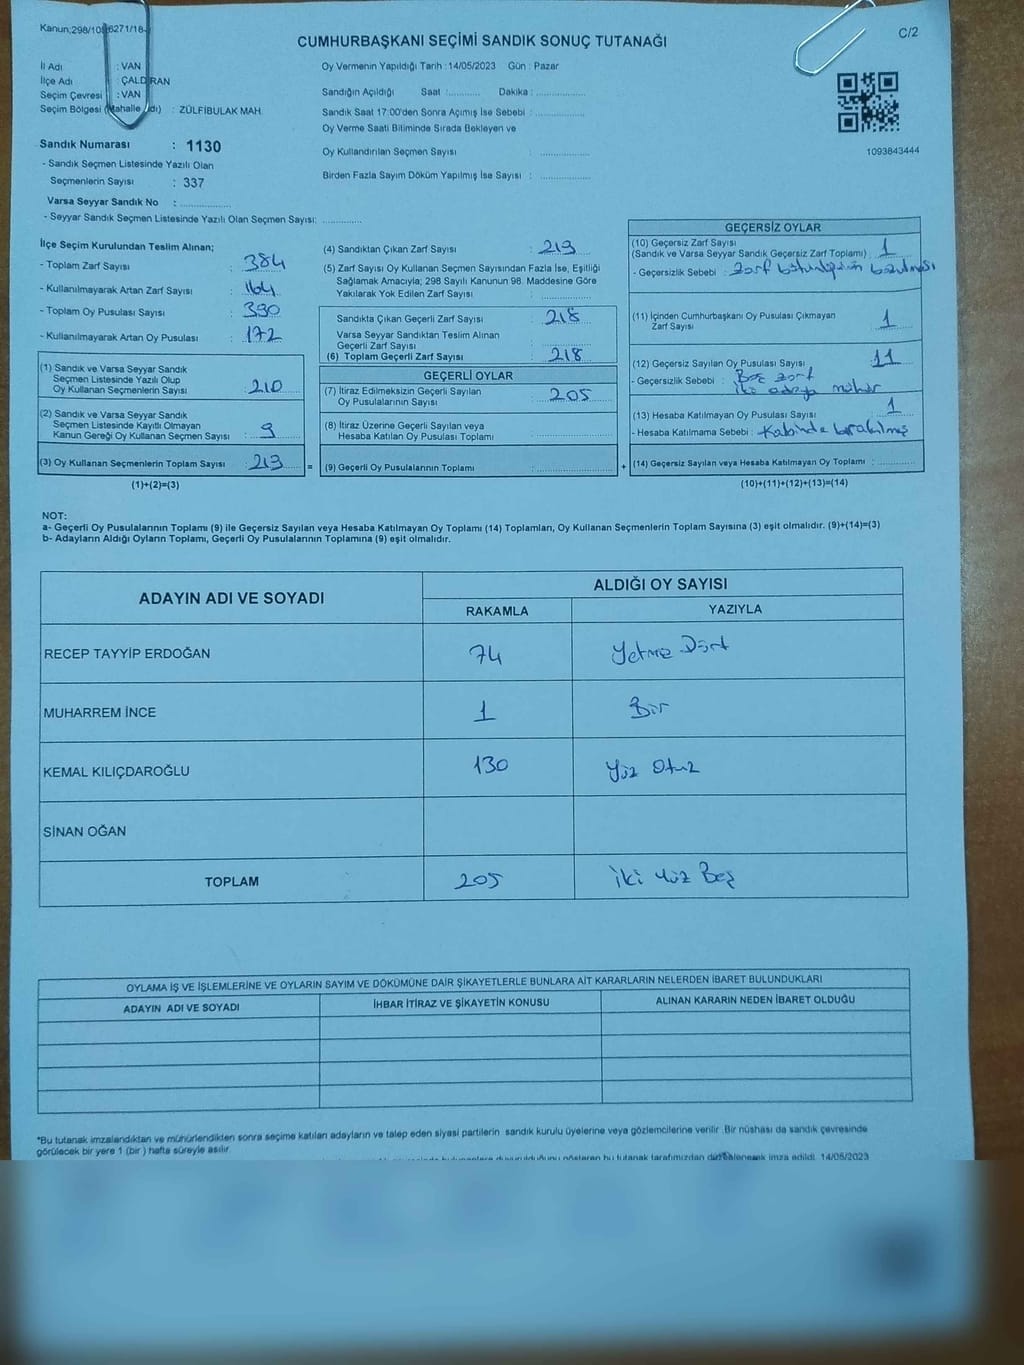 Kanun:298/10 6271/18-
C/2
CUMHURBAŞKANI SEÇİMİ SANDIK SONUÇ TUTANAĞI
İl Adı : VAN
İlçe Adı : ÇALDIRAN
Seçim Çevresi : VAN
Seçim Bölgesi (Mahalle Adı) : ZÜLFİBULAK MAH.
Oy Vermenin Yapıldığı Tarih : 14/05/2023 Gün : Pazar
Sandığın Açıldığı Saat :........... Dakika :................
Sandık Saat 17:00'den Sonra Açımış İse Sebebi :................
Oy Verme Saati Bitiminde Sırada Bekleyen ve
Oy Kullandırılan Seçmen Sayısı :................
Birden Fazla Sayım Döküm Yapılmış İse Sayısı :................
1093843444
Sandık Numarası : 1130
- Sandık Seçmen Listesinde Yazılı Olan
Seçmenlerin Sayısı : 337
Varsa Seyyar Sandık No :................
- Seyyar Sandık Seçmen Listesinde Yazılı Olan Seçmen Sayısı: ............
İlçe Seçim Kurulundan Teslim Alınan;
- Toplam Zarf Sayısı : 384
- Kullanılmayarak Artan Zarf Sayısı : 164
- Toplam Oy Pusulası Sayısı : 390
- Kullanılmayarak Artan Oy Pusulası : 172
(1) Sandık ve Varsa Seyyar Sandık
Seçmen Listesinde Yazılı Olup
Oy Kullanan Seçmenlerin Sayısı : 210
(2) Sandık ve Varsa Seyyar Sandık
Seçmen Listesinde Kayıtlı Olmayan
Kanun Gereği Oy Kullanan Seçmen Sayısı : 9
(3) Oy Kullanan Seçmenlerin Toplam Sayısı : 219 =
(1)+(2)=(3)
(4) Sandıktan Çıkan Zarf Sayısı : 219
(5) Zarf Sayısı Oy Kullanan Seçmen Sayısından Fazla İse, Eşitliği
Sağlamak Amacıyla; 298 Sayılı Kanunun 98. Maddesine Göre
Yakılarak Yok Edilen Zarf Sayısı :................
Sandıkta Çıkan Geçerli Zarf Sayısı : 218
Varsa Seyyar Sandıktan Teslim Alınan
Geçerli Zarf Sayısı :................
(6) Toplam Geçerli Zarf Sayısı : 218
GEÇERLİ OYLAR
(7) İtiraz Edilmeksizin Geçerli Sayılan
Oy Pusulalarının Sayısı : 205
(8) İtiraz Üzerine Geçerli Sayılan veya
Hesaba Katılan Oy Pusulası Toplamı :................
(9) Geçerli Oy Pusulalarının Toplamı :................ +
GEÇERSİZ OYLAR
(10) Geçersiz Zarf Sayısı
(Sandık ve Varsa Seyyar Sandık Geçersiz Zarf Toplamı) : 1
- Geçersizlik Sebebi : Zarf bütünlüğünün bozulması
(11) İçinden Cumhurbaşkanı Oy Pusulası Çıkmayan
Zarf Sayısı : 1
(12) Geçersiz Sayılan Oy Pusulası Sayısı : 11
- Geçersizlik Sebebi : Boş zarf
iki adaya mühür
(13) Hesaba Katılmayan Oy Pusulası Sayısı : 1
- Hesaba Katılmama Sebebi : Kabinde bırakılmış
(14) Geçersiz Sayılan veya Hesaba Katılmayan Oy Toplamı :............
(10)+(11)+(12)+(13)=(14)
NOT:
a- Geçerli Oy Pusulalarının Toplamı (9) ile Geçersiz Sayılan veya Hesaba Katılmayan Oy Toplamı (14) Toplamları, Oy Kullanan Seçmenlerin Toplam Sayısına (3) eşit olmalıdır. (9)+(14)=(3)
b- Adayların Aldığı Oyların Toplamı, Geçerli Oy Pusulalarının Toplamına (9) eşit olmalıdır.
ADAYIN ADI VE SOYADI
ALDIĞI OY SAYISI
RAKAMLA YAZIYLA
RECEP TAYYİP ERDOĞAN 74 Yetmiş Dört
MUHARREM İNCE 1 Bir
KEMAL KILIÇDAROĞLU 130 Yüz Otuz
SİNAN OĞAN
TOPLAM 205 İki Yüz Beş
OYLAMA İŞ VE İŞLEMLERİNE VE OYLARIN SAYIM VE DÖKÜMÜNE DAİR ŞİKAYETLERLE BUNLARA AİT KARARLARIN NELERDEN İBARET BULUNDUKLARI
ADAYIN ADI VE SOYADI İHBAR İTİRAZ VE ŞİKAYETİN KONUSU ALINAN KARARIN NEDEN İBARET OLDUĞU
*Bu tutanak imzalandıktan ve mühürlendikten sonra seçime katılan adayların ve talep eden siyasi partilerin sandık kurulu üyelerine veya gözlemcilerine verilir. Bir nüshası da sandık çevresinde
görülecek bir yere 1 (bir) hafta süreyle asılır.
bu tutanak tarafımızdan düzenlenerek imza edildi. 14/05/2023